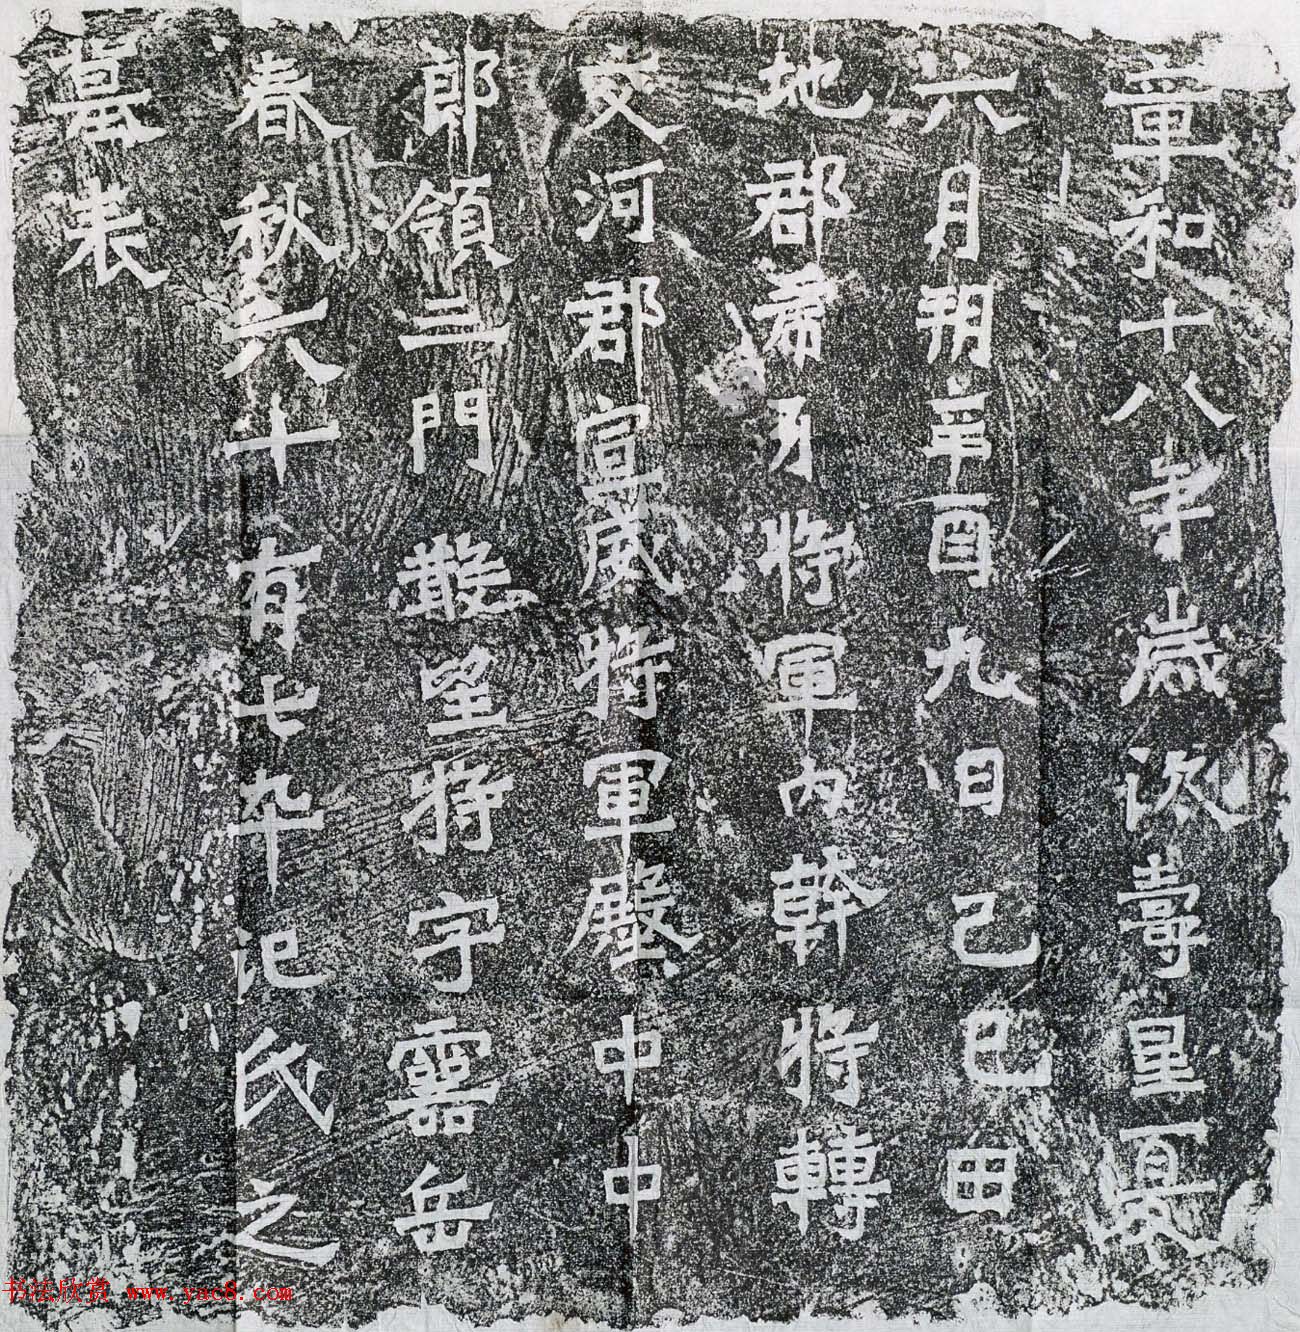 章和十八年歲次壽星夏
六月朔辛酉九日己巳田
地郡虎牙將軍內幹將轉
交河郡宣威將軍殿中中
郎領三門散望將字靈岳
春秋六十有七卒氾氏之
墓表
书法欣赏 www.yac8.com